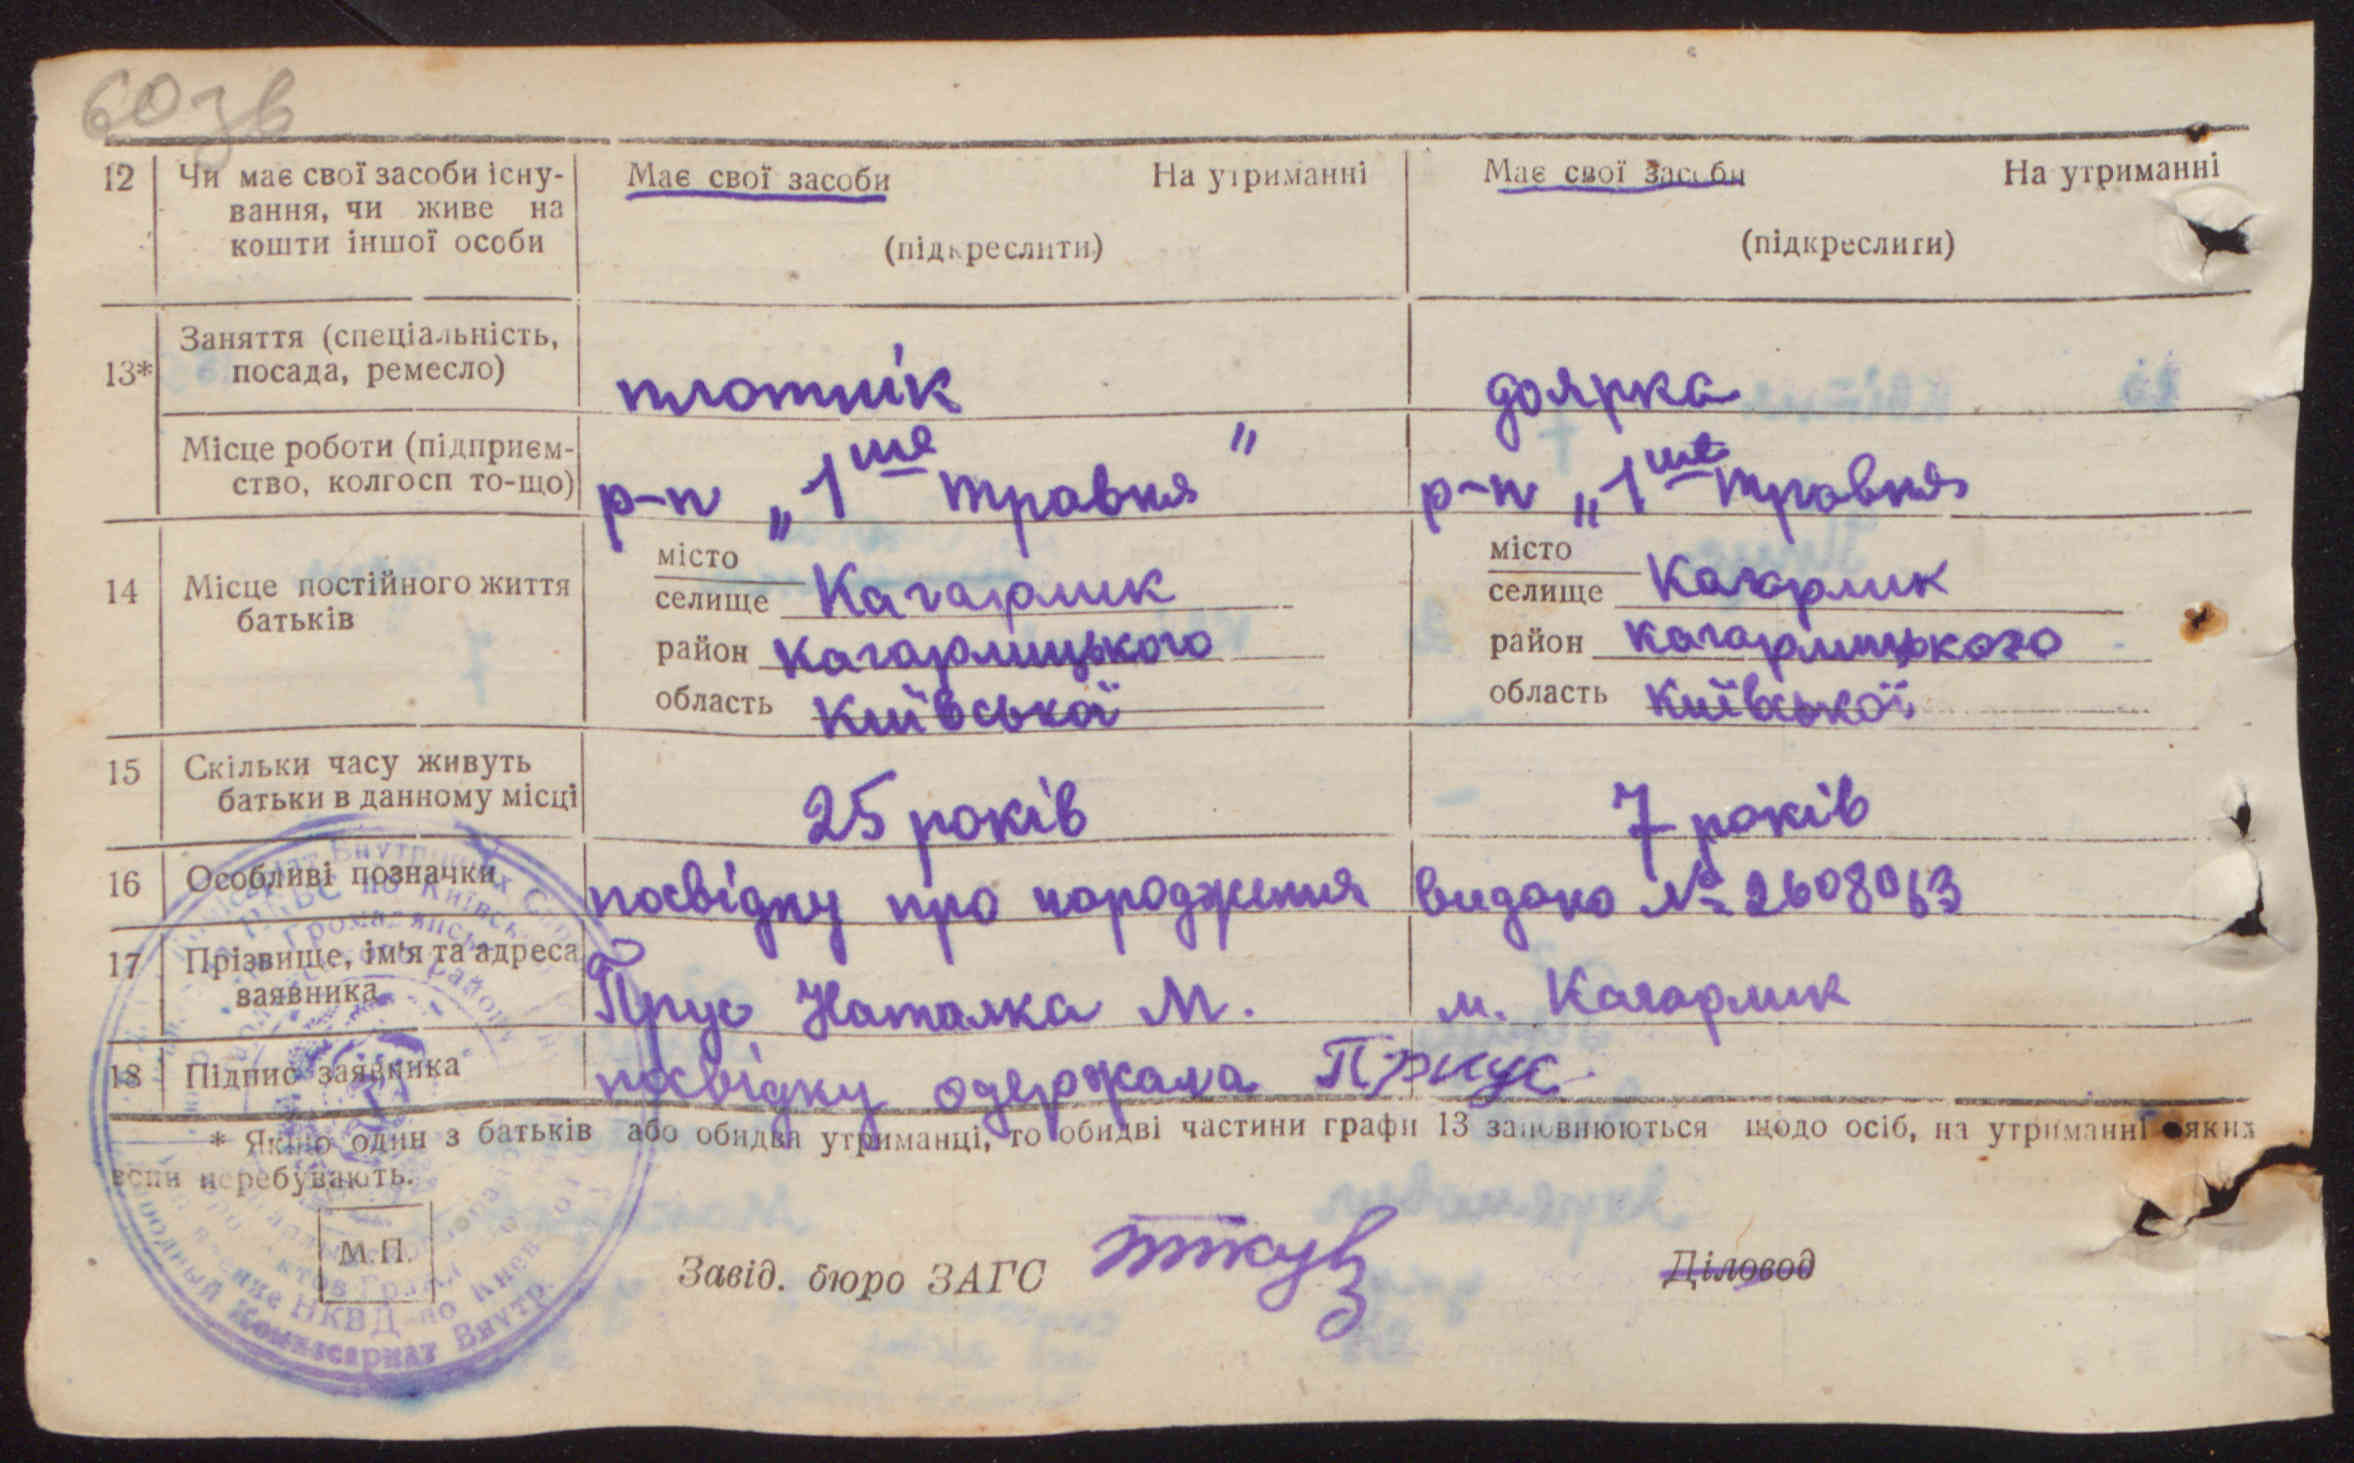 60зв
12 Чи має свої засоби існу- Має свої засоби На утриманні Має свої засоби На утриманні
вання, чи живе на
кошти іншої особи (підкреслити) (підкреслити)
Заняття (спеціальність,
13* посада, ремесло) плотнік доярка
Місце роботи (підприєм-
ство, колгосп то-що) р-п „1ше травня" р-п „1ше травня
місто місто
14 Місце постійного життя селище Кагарлик селище Кагарлик
батьків район Кагарлицького район Кагарлицького
область Київської область Київської
15 Скільки часу живуть
батьки в данному місці 25 років 7 років
16 Особливі позначки посвідку про народження видано № 2608063
17 Прізвище, ім'я та адреса
заявника Прус Наталка М. м. Кагарлик
18 Підпис заявника посвідку одержала Приус
* Якщо один з батьків або обидва утриманці, то обидві частини графи 13 заповнюються щодо осіб, на утриманні яких
вони перебувають.
М.П.
Завід. бюро ЗАГС Діловод
Комиссариат Внутр.
НКВД по Киев